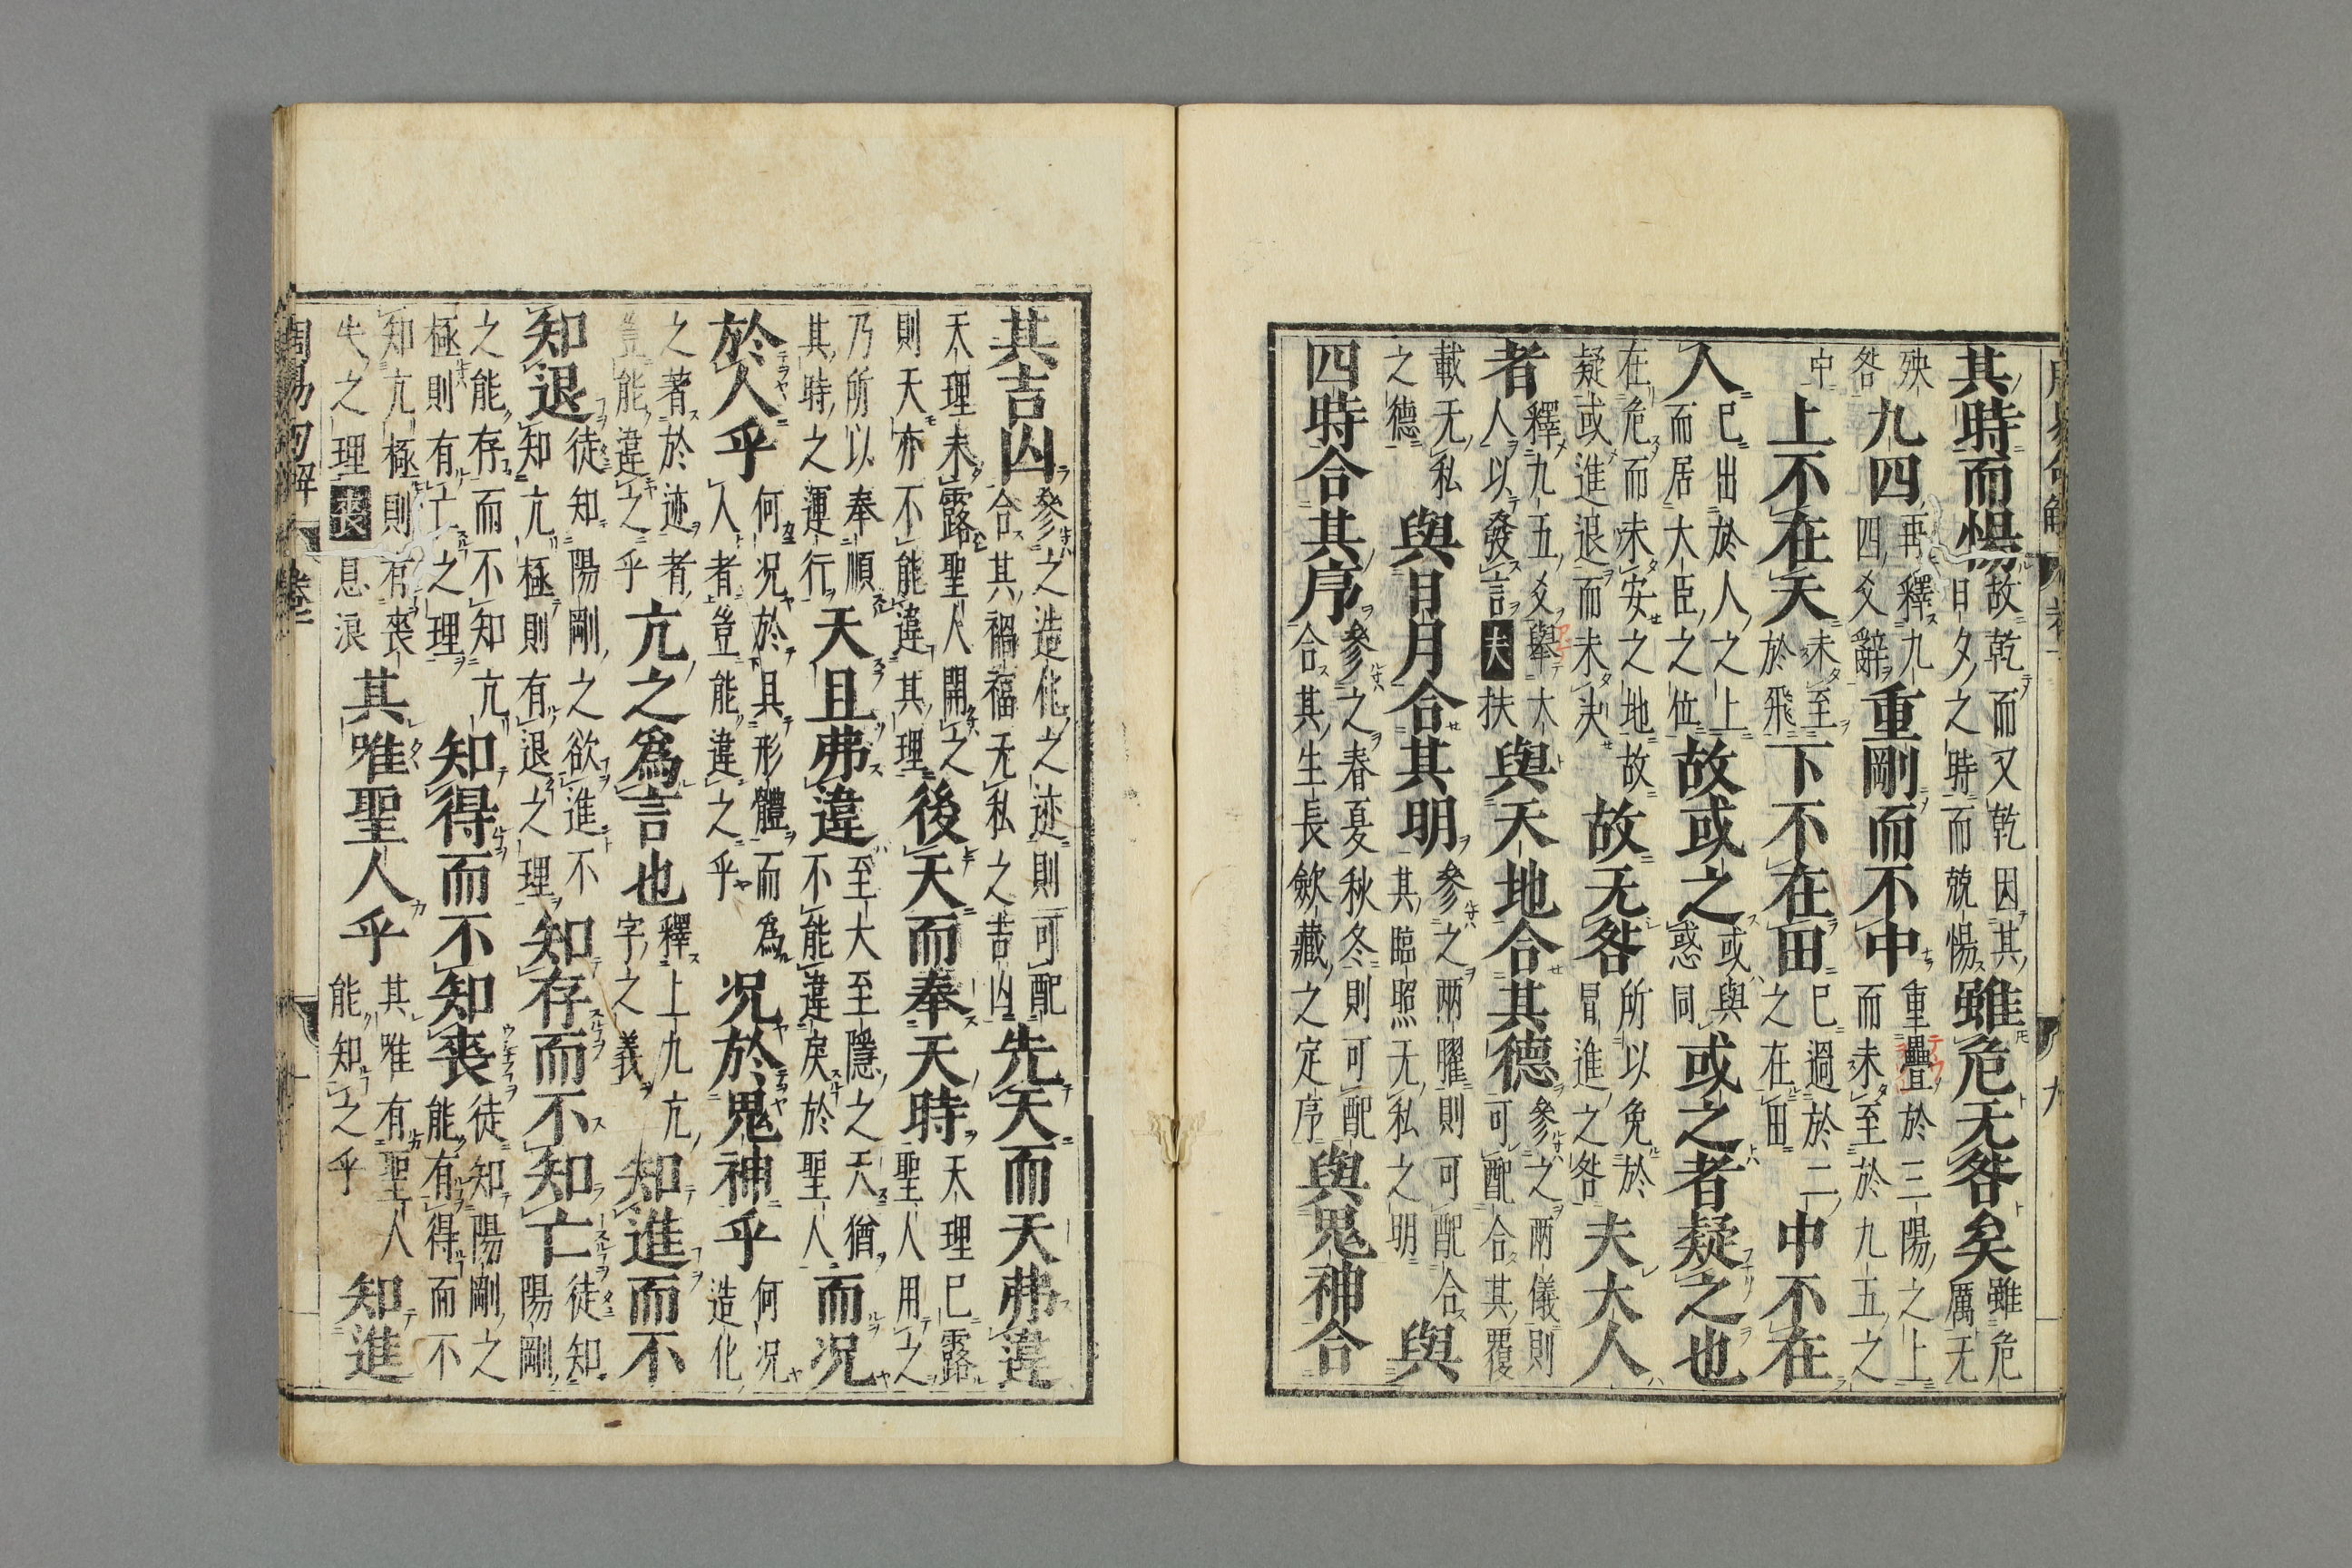 其時而惕故乾而又乾因其日夕之時而兢惕雖危无咎矣雖危厲无
殃咎九四再釋九四爻辭重剛而不中重疊於三陽之上而未至於九五之
中上不在天未至於飛下不在田已過於二之在田中不在
人已出於人之上而居大臣之位故或之或與惑同或之者疑之也
在危而未安之地故疑或進退而未决故无咎所以免於冒進之咎夫大人
者釋九五爻舉大人以發言夫扶與天地合其德參之兩儀則可配合其覆
載无私之德與日月合其明參之兩曜則可配合其臨照无私之明與
四時合其序參之春夏秋冬則可配合其生長斂藏之定序與鬼神合
其吉凶參之造化之迹則可配合其禍福无私之吉凶先天而天弗違
天理未露聖人開之則天亦不能違其理後天而奉天時天理已露聖人用之
乃所以奉順其時之運行天且弗違至大至隱之天猶不能違戾於聖人而况
於人乎何况於具形體而為人者豈能違之乎况於鬼神乎何况造化
之著於迹者豈能違之乎亢之爲言也釋上九亢字之義知進而不
知退徒知陽剛之欲進不知亢極則有退之理知存而不知亡徒知陽剛
之能存而不知亢極則有亡之理知得而不知喪徒知陽剛之能有得而不
知亢極則有喪失之理喪息浪其唯聖人乎其唯有聖人能知之乎知進
周易句解